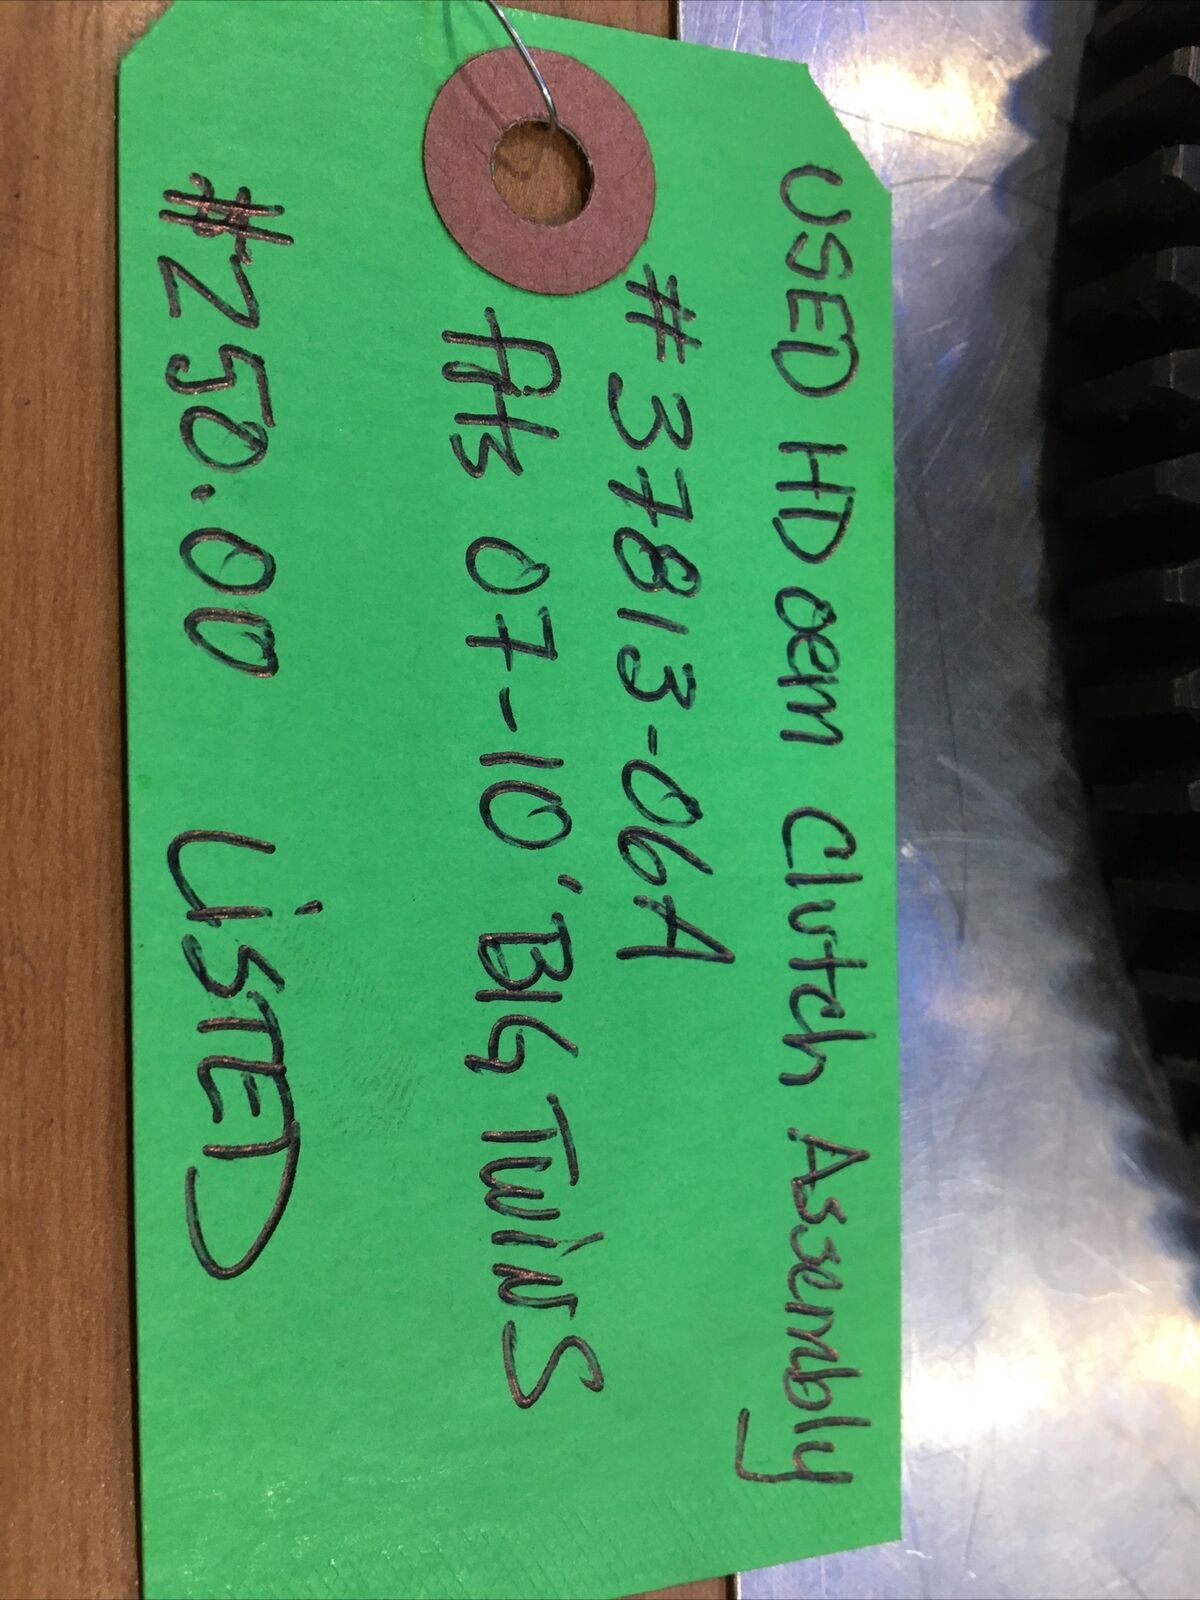 USED HD oem Clutch Assembly
#37813-06A
fits 07-10' BIG TWiNS
#250.00 LiSTED